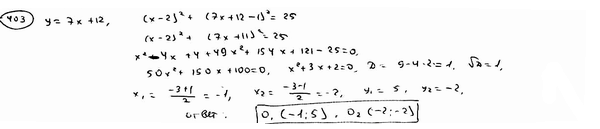 403 y = 7x + 12, (x - 2)² + (7x + 12 - 1)² = 25
(x - 2)² + (7x + 11)² = 25
x² - 4x + 4 + 49x² + 154x + 121 - 25 = 0,
50x² + 150x + 100 = 0, x² + 3x + 2 = 0, D = 9 - 4·2 = 1, √D = 1,
x₁ = (-3+1)/2 = -1, x₂ = (-3-1)/2 = -2, y₁ = 5, y₂ = -2,
Ответ: O₁ (-1; 5), O₂ (-2; -2)